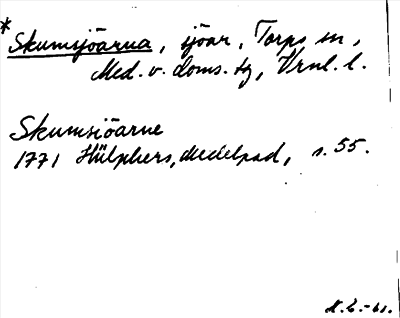 * Skumsjöarna, sjöar, Torps sn,
Med. v. doms. tg, Vrnl. l.
Skumsiöarne
1771 Hülphers, Medelpad, s. 55.